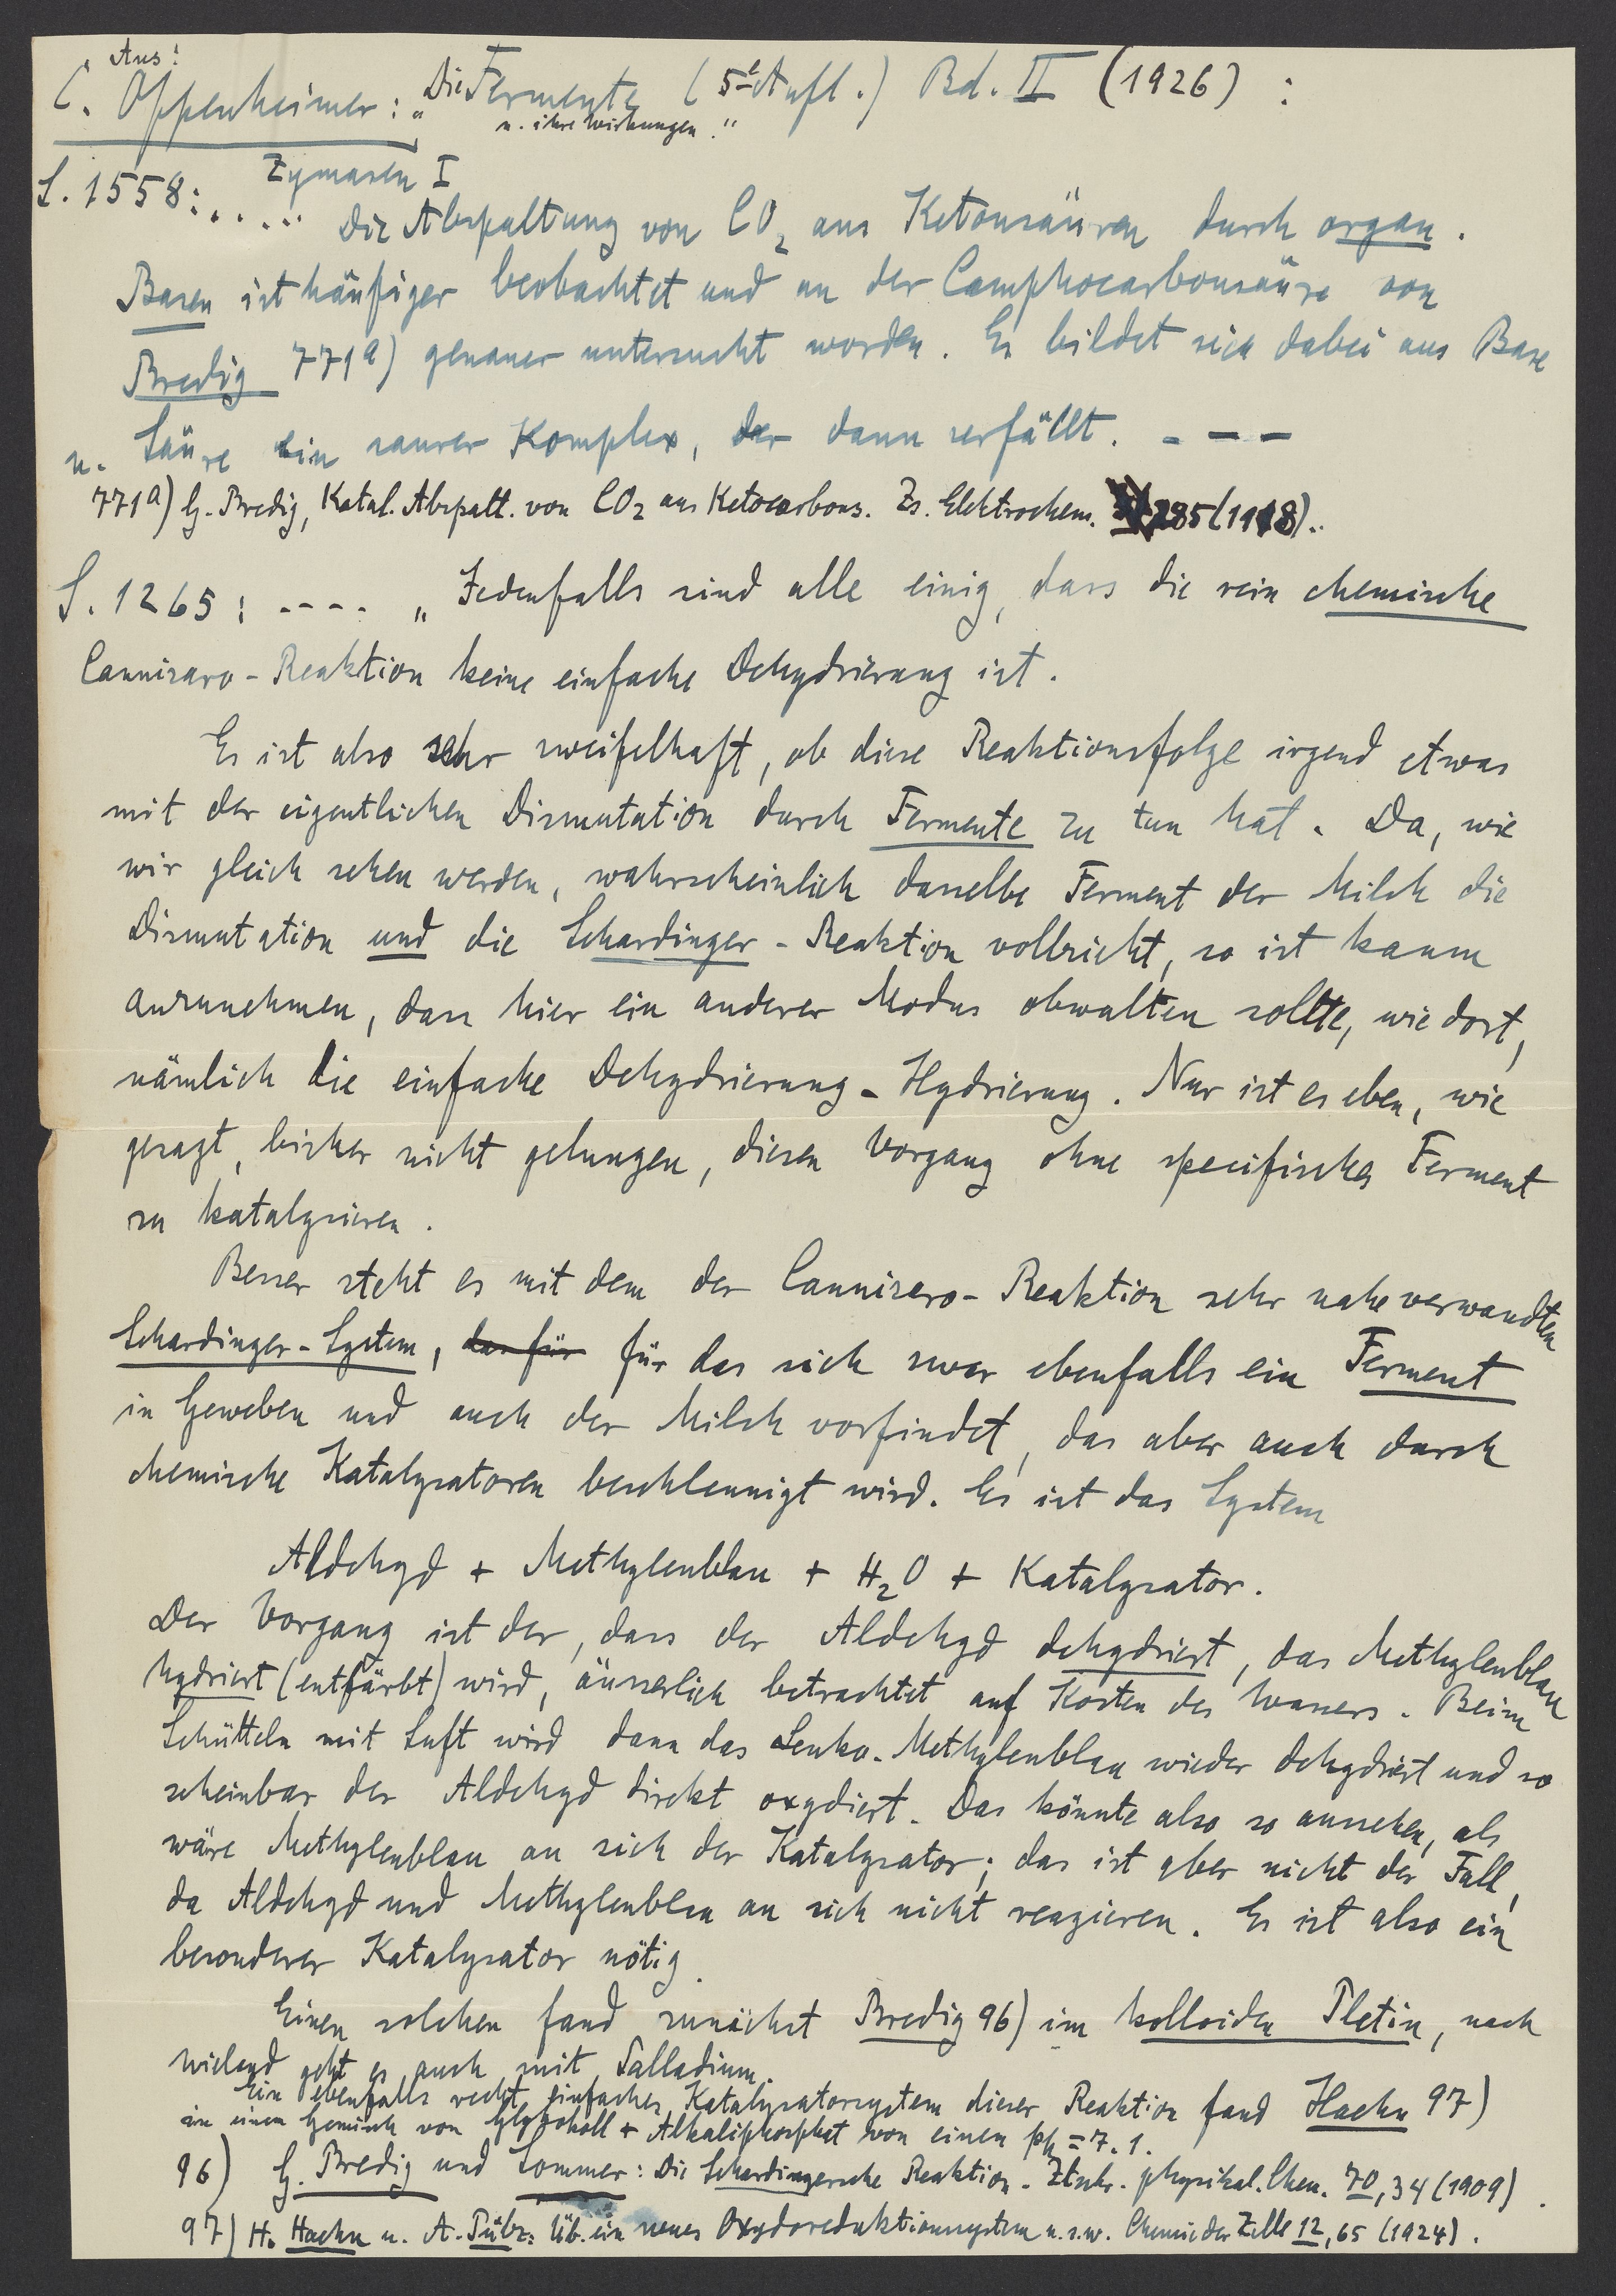 Aus:
C. Oppenheimer: „Die Fermente (5te Aufl.) Bd. II (1926) :
u. ihre Wirkungen."
Zymasen I
S. 1558: ..... Die Abspaltung von CO2 aus Ketonsäuren durch organ.
Basen ist häufiger beobachtet und an der Camphocarbonsäure von
Bredig 771a) genauer untersucht worden. Es bildet sich dabei aus Base
u. Säure ein saurer Komplex, der dann zerfällt. - - - -
771a) G. Bredig, Katal. Abspalt. von CO2 aus Ketocarbons. Zs. Elektrochem. 285 (1918)..
S. 1265: ---- „Jedenfalls sind alle einig, dass die rein chemische
Cannizaro-Reaktion keine einfache Dehydrierung ist.
Es ist also sehr zweifelhaft, ob diese Reaktionsfolge irgend etwas
mit der eigentlichen Dismutation durch Fermente zu tun hat. Da, wie
wir gleich sehen werden, wahrscheinlich dasselbe Ferment der Milch die
Dismutation und die Schardinger-Reaktion vollzieht, so ist kaum
anzunehmen, dass hier ein anderer Modus obwalten sollte, wie dort,
nämlich die einfache Dehydrierung-Hydrierung. Nur ist es eben, wie
gesagt, bisher nicht gelungen, diesen Vorgang ohne specifisches Ferment
zu katalysieren.
Besser steht es mit dem der Cannizero-Reaktion sehr nahe verwandten
Schardinger-System, das für für das sich zwar ebenfalls ein Ferment
in Geweben und auch der Milch vorfindet, das aber auch durch
chemische Katalysatoren beschleunigt wird. Es ist das System
Aldehyd + Methylenblau + H2O + Katalysator.
Der Vorgang ist der, dass der Aldehyd dehydriert, das Methylenblau
hydriert (entfärbt) wird, äusserlich betrachtet auf Kosten des Wassers. Beim
Schütteln mit Luft wird dann das Leuko-Methylenblau wieder dehydriert und so
scheinbar der Aldehyd direkt oxydiert. Das könnte also so aussehen, als
wäre Methylenblau an sich der Katalysator; das ist aber nicht der Fall,
da Aldehyd und Methylenblau an sich nicht reagieren. Es ist also ein
besonderer Katalysator nötig.
Einen solchen fand zunächst Bredig 96) im kolloiden Platin, nach
Wieland geht es auch mit Palladium.
Ein ebenfalls recht einfaches Katalysatorsystem dieser Reaktion fand Haehn 97)
in einem Gemisch von Glykokoll + Alkaliphosphat von einem pH = 7.1.
96) G. Bredig und Sommer: Die Schardingersche Reaktion. Ztschr. physikal. Chem. 70, 34 (1909).
97) H. Haehn u. A. Pülz: Üb. ein neues Oxydoreduktionssystem u.s.w. Chemie der Zelle 12, 65 (1924).